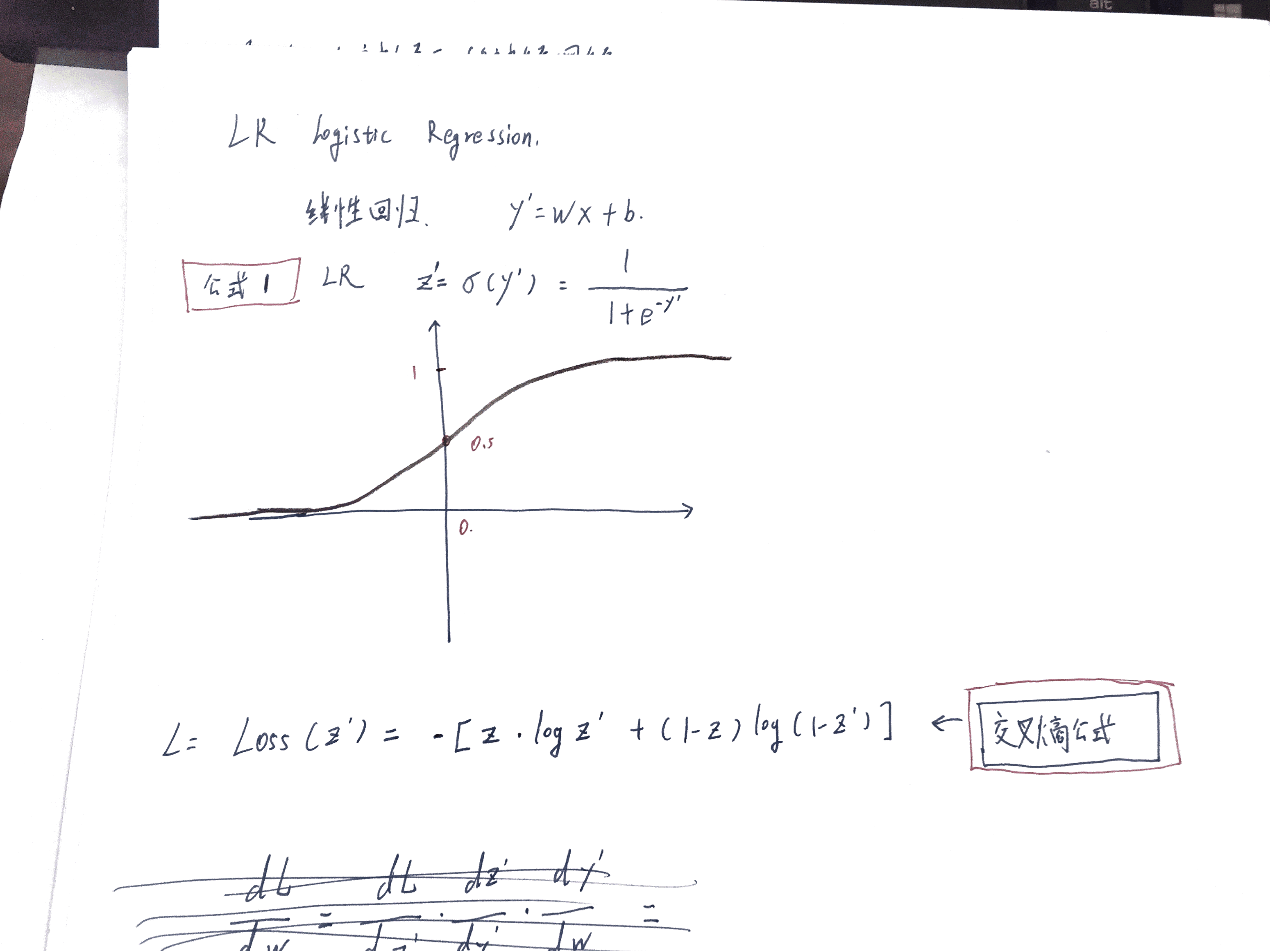 LR Logistic Regression.
线性回归. y'=wx+b.
公式1 LR z'= σ(y') = 1/(1+e^-y')
1
0.5
0.
L= Loss(z') = -[z·log z' + (1-z) log(1-z')] ← 交叉熵公式
dL/dw = dL/dz' · dz'/dy' · dy'/dw =